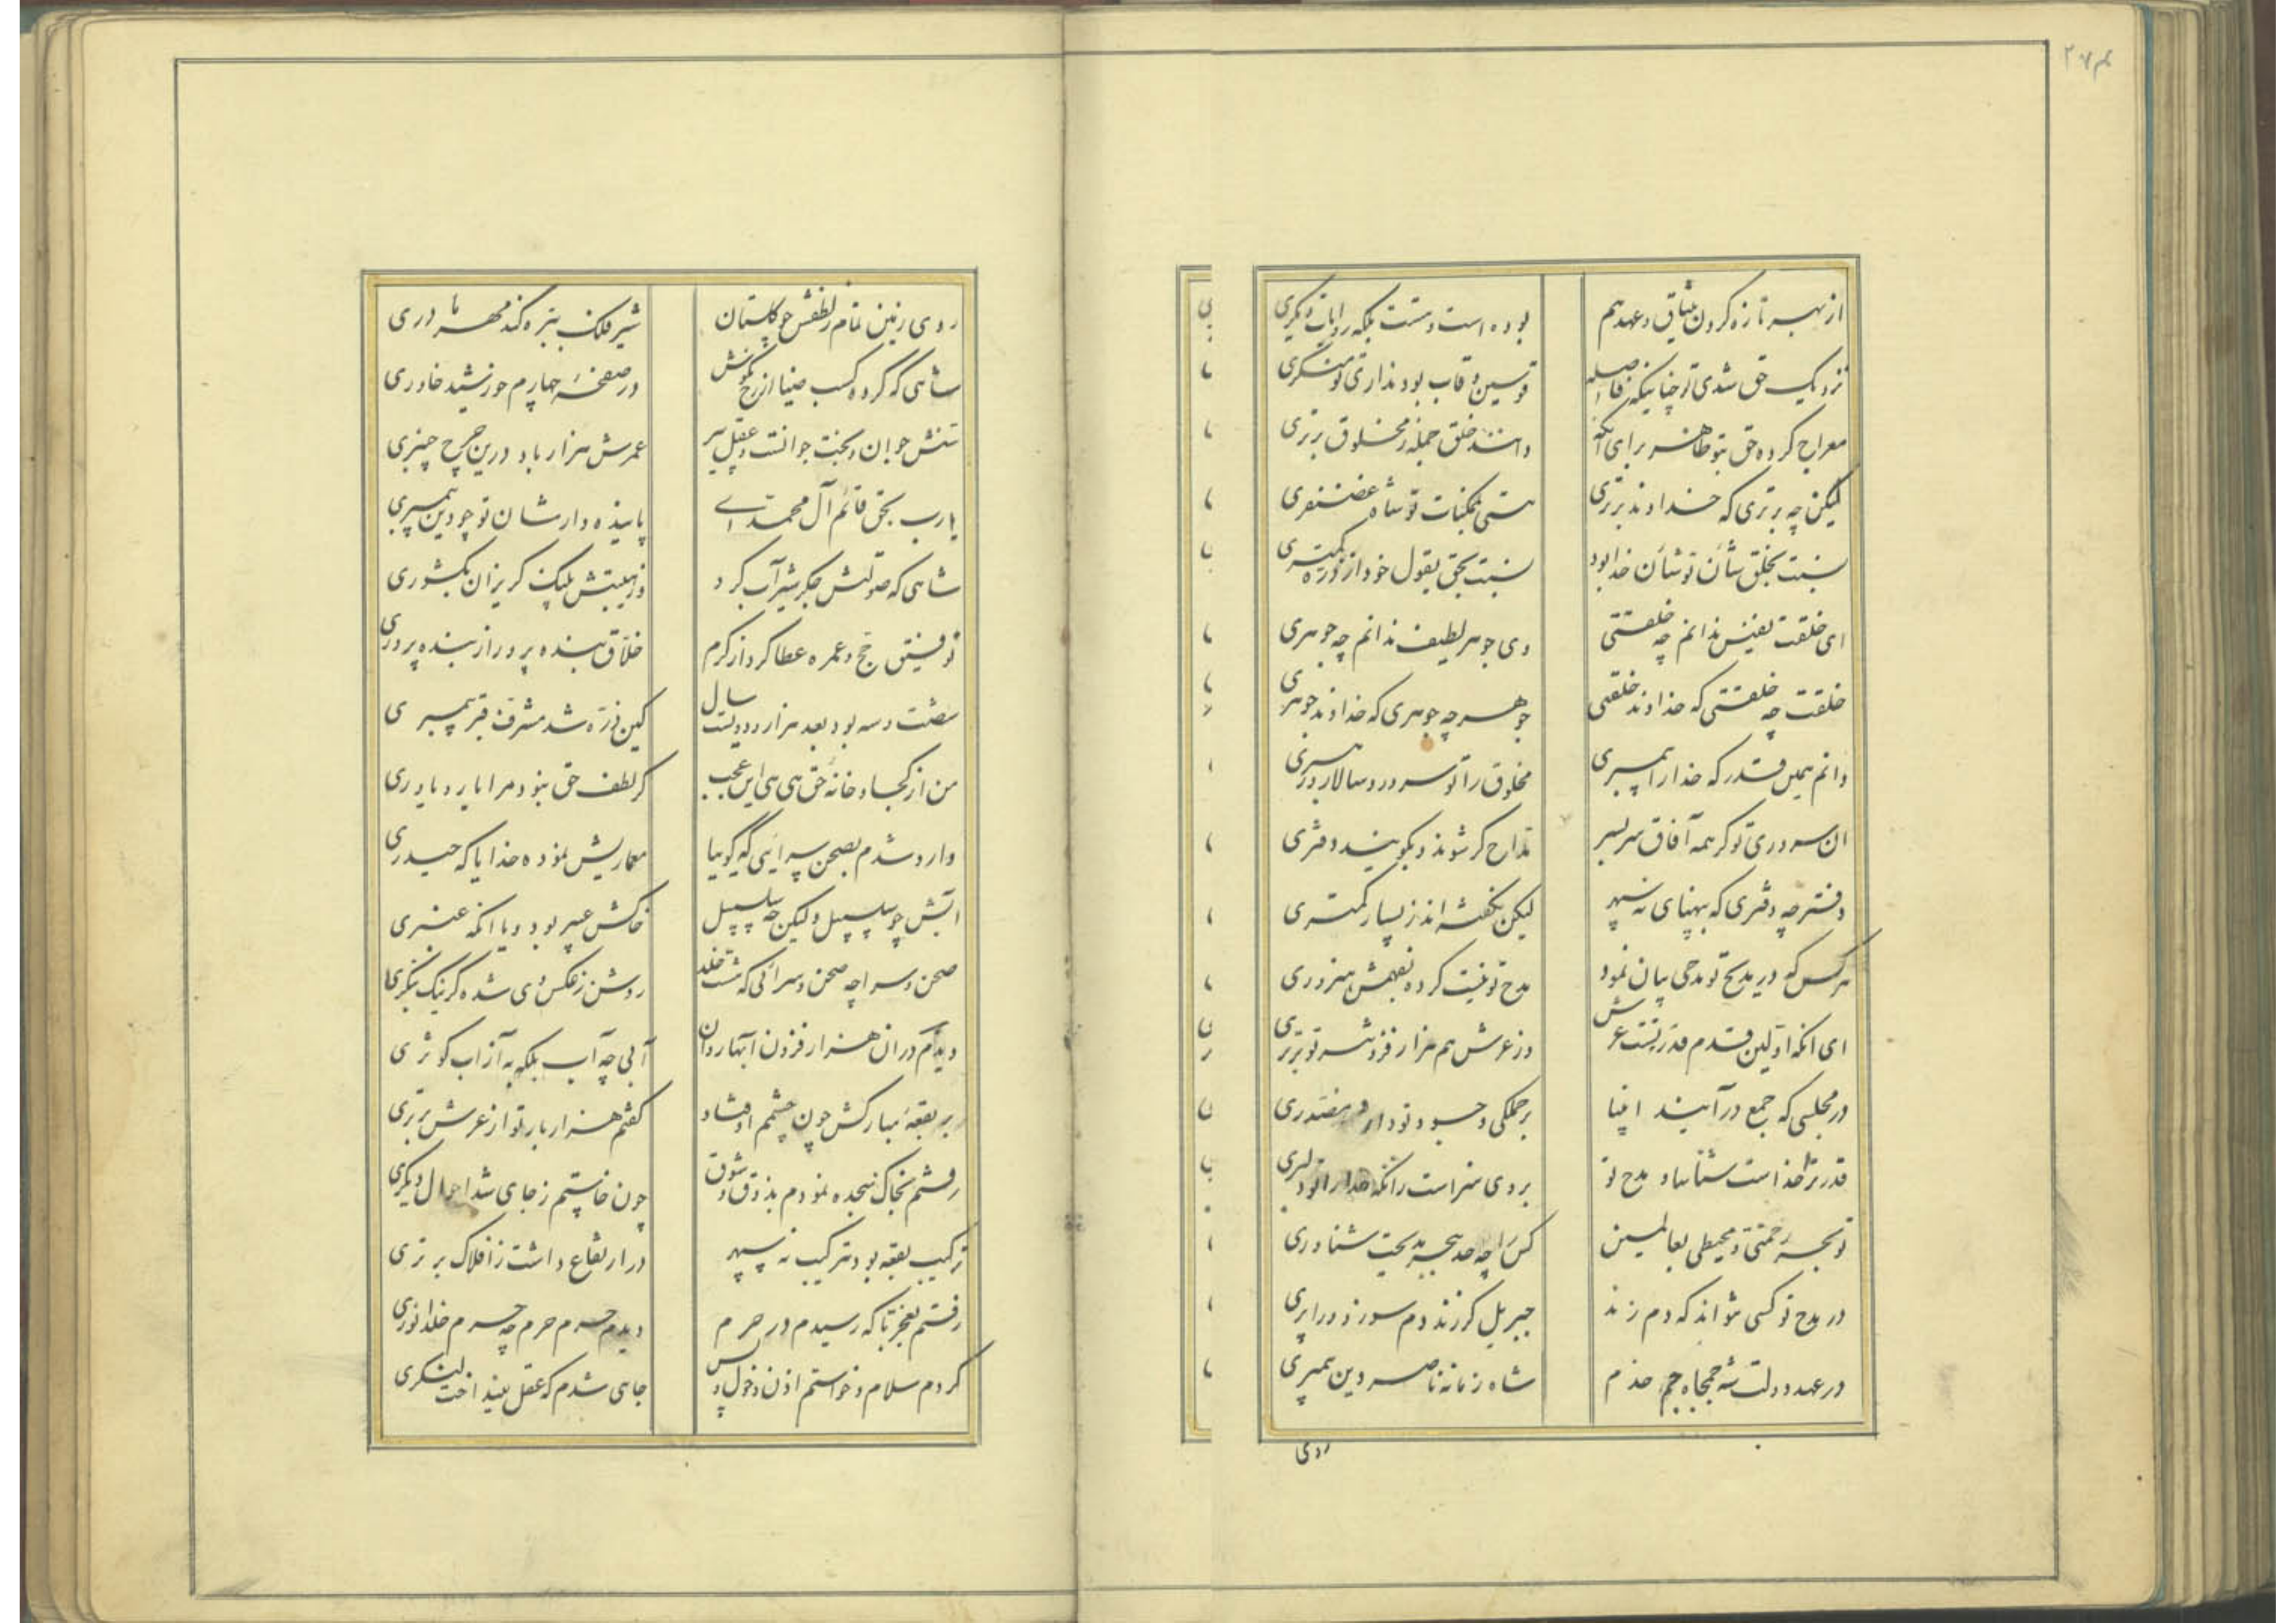 ۲۷۴
از بهر تازه کردن میثاق و عهد هم بوده است و هست بلکه روایات دیگری
نزدیک حق شدی تو چنانیکه فاصله قوسین و قاب بود نداری تو منکری
معراج کرده حق بتو ظاهر برای آنکه دانند خلق جمله ز مخلوق برتری
لیکن چه برتری که خداوند برتری هستی ممکنات تو شاه غضنفری
نسبت بخلق شأن تو شأن خدا بود نسبت بحق بقول خود از ذره کمتری
ای خلقت نفیس ندانم چه خلقتی وی جوهر لطیف ندانم چه جوهری
خلقت چه خلقتی که خداوند خلقتی جوهر چه جوهری که خداوند جوهری
دانم همین قدر که خدا را پیمبری مخلوق را تو سرور و سالار و رهبری
ان سروری تو کر همه آفاق سر بسر مداح کر شوند و بکویند دفتری
دفتر چه دفتری که بپهنای نه سپهر لیکن نکفته اند ز بسیار کمتری
هر کس که در مدیح تو مدحی بیان نمود مدح تو نیست کرده بفهمش هنروری
ای انکه اولین قدم قدر تست عرش وز عرش هم هزار فزونتر تو برتری
در مجلسی که جمع در آیند انبیا بر جملکی وجود تو دارد
قدر ترا خداست شناسا و مدح تو بر وی سزاست زانکه خدا را تو دلبری
تو بحر رحمتی و محیطی بعالمین کس را چه حد ببحر مدیحت شناوری
در مدح تو کسی نتواند که دم زند جبریل کر زند دم سوزد ورا پری
در عهد دولت شه جمجاه جم خدم شاه زمانه ناصر دین پیمبری
روی
روی زمین تمام ز لطفش چو کلستان شیر فلک ببزه کند مهر مادری
شاهی که کرده کسب ضیا از رخ نکوش در صفحهٔ چهارم خورشید خاوری
تنش جوان و بخت جوانست و عقل پیر عمرش هزار باد درین چرخ چنبری
یارب بحق قائم آل محمدت پاینده دار شان تو چو دین پیمبری
شاهی که صولتش جکر شیر آب کرد وز هیبتش پلنک کریزان بکشوری
توفیق حج و عمره عطا کرد از کرم خلاق بنده پرور از بنده پروری
شصت و سه بود بعد هزار و دویست سال کین ذره شد مشرف قبر پیمبری
من از کجا و خانهٔ حق هی هی این عجب کر لطف حق نبود مرا یار و یاوری
وارد شدم بصحن سرایی که کوییا معماریش نموده خدا یا که حیدری
ابش چو سلسبیل ولیکن چه سلسبیل خاکش عبیر بود و یا انکه عنبری
صحن و سرا چه صحن و سرائی که هشت خلد روشن ز عکس وی شده کر نیک بنکری
دیدم در ان هزار فزون ابها روان آبی چه آب بلکه به از آب کوثری
بر بقعهٔ مبارکش چون چشمم اوفتاد کفتم هزار بار تو از عرش برتری
رفتم بخاک سجده نمودم بذوق و شوق چون خاستم ز جای شد احوال دیکری
ترکیب بقعه بود بترکیب نه سپهر در ارتفاع داشت ز افلاک برتری
رفتم بعجز تا که رسیدم در حرم دیدم حرم حرم چه حرم خلد انوری
کردم سلام و خواستم اذن دخول و پس جای شدم که عقل بینداخت لنکری